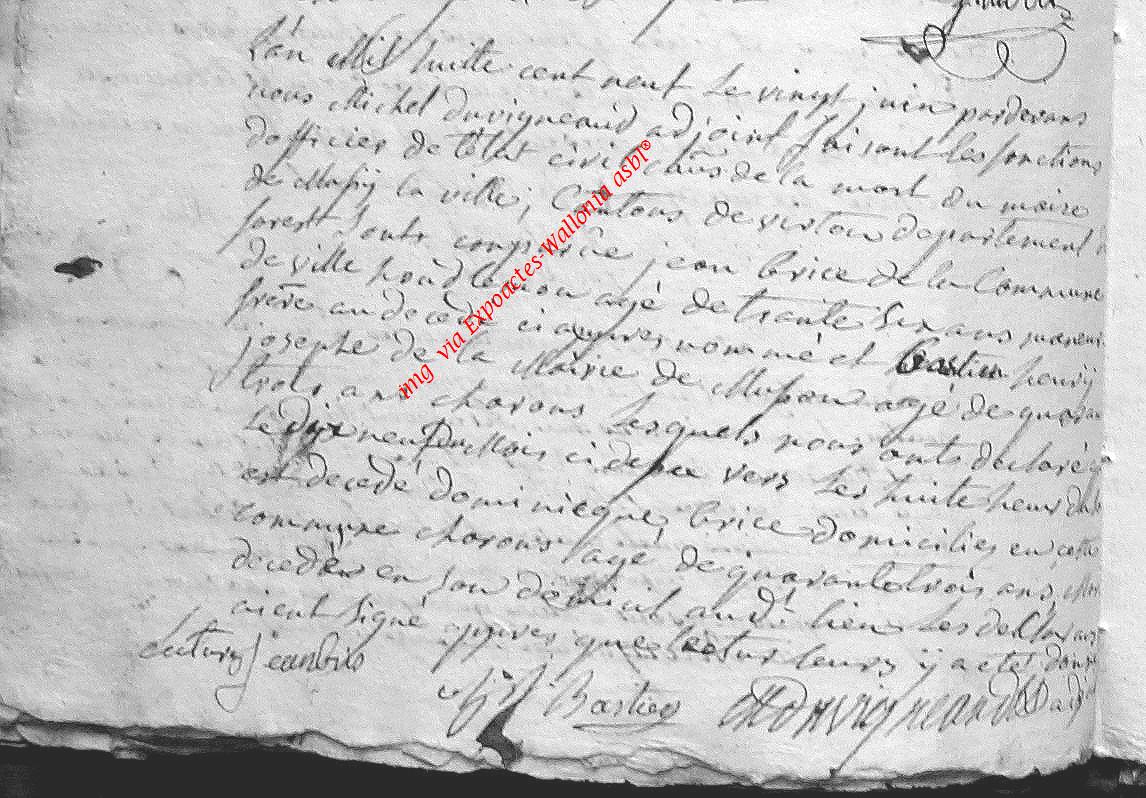 L'an Mil huitte cent neuf le vingt juin pardevans
nous Michel Duvigneaud adjoint faisant les fonctions
D'officier de l'Etat civil de la mort du maire
de Mussy la ville, Cantons de virton departement
forest sonts comparue jean brice de la Commune
de ville houdlemon agé de trante six ans
frère au decedé ci appres nommé et Bastien henry
josephe de la Mairie de Musson agé de
trois ans charons Lesquels nous onts declaré
Le Dix neuf Du Mois ci desue vers les huite heur du
est decedé dominicque brice domiciliés en cette
commune charons agé de quarante trois ans
decedée en son domicil au d. lieu Les declarans
aient signé appres que lecture leurs y a eté donné
lecture jean bris
Bastien
MDuvigneaud
img via Expoactes-Wallonia asbl®